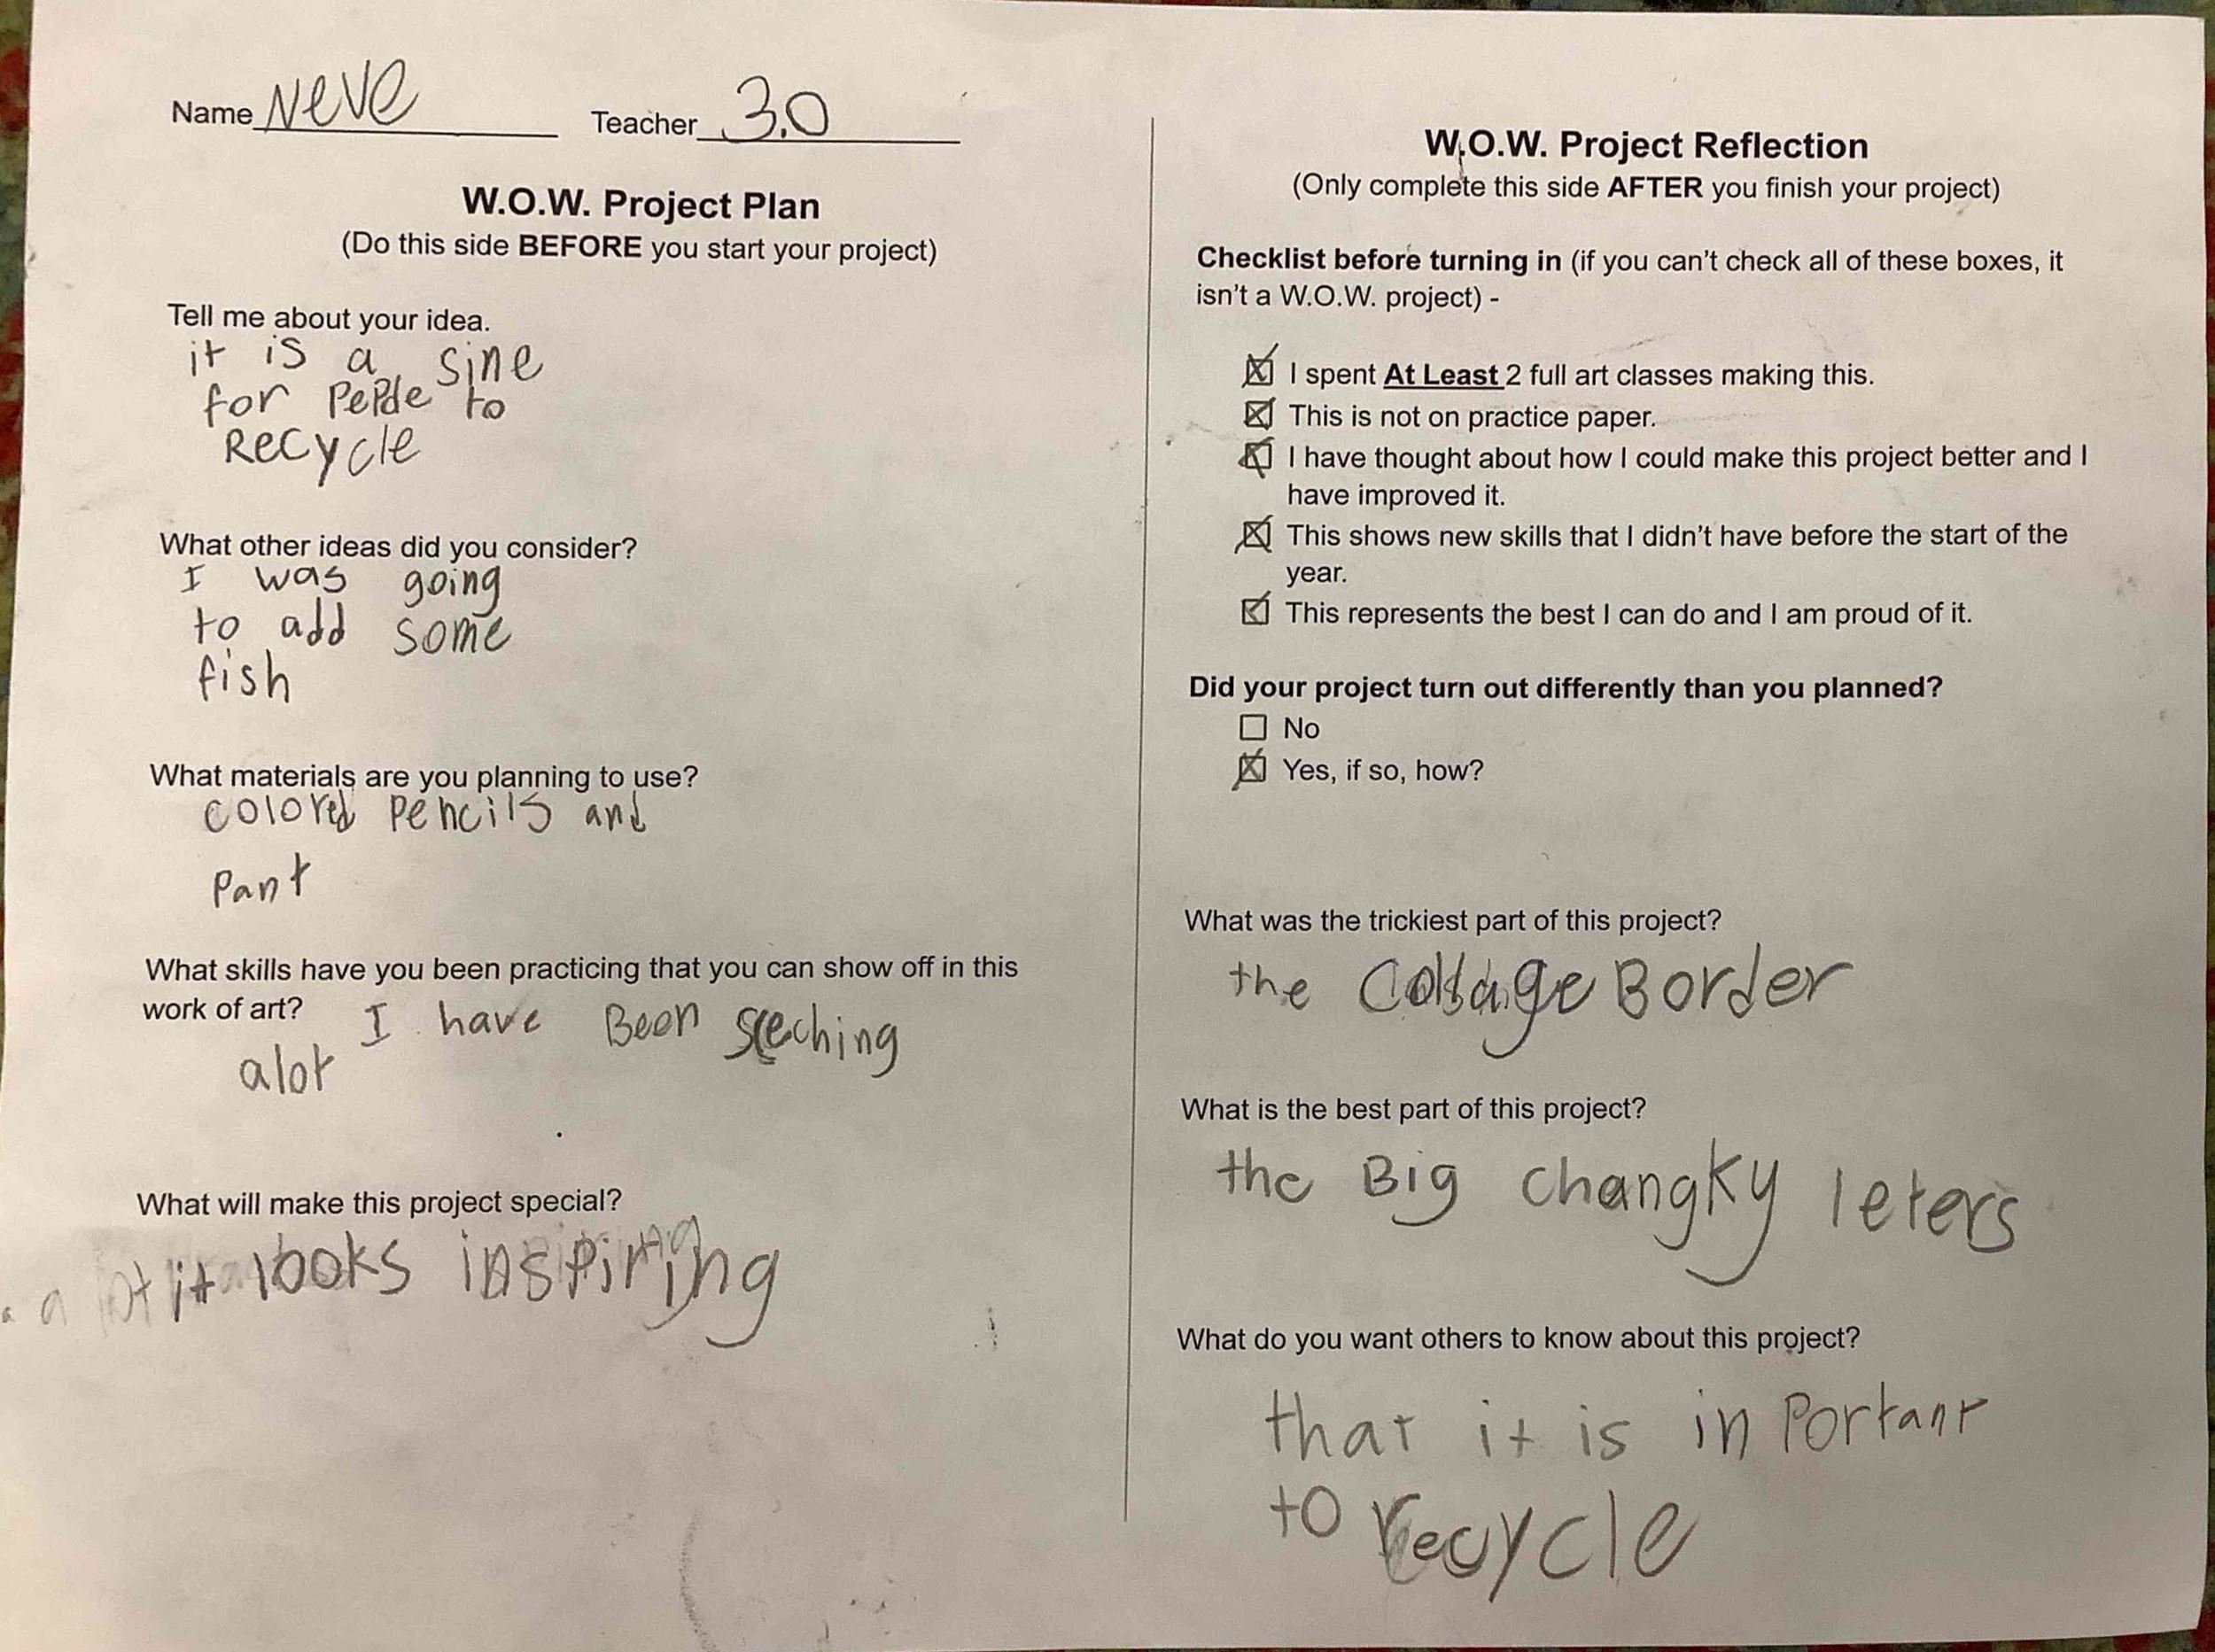 Name Neve Teacher 3.0
W.O.W. Project Plan
(Do this side BEFORE you start your project)
Tell me about your idea.
it is a sine
for PePle to
Recycle
What other ideas did you consider?
I was going
to add some
fish
What materials are you planning to use?
colored pencils and
Pant
What skills have you been practicing that you can show off in this
work of art? I have Been sceching
alot
What will make this project special?
it looks inspiring
W.O.W. Project Reflection
(Only complete this side AFTER you finish your project)
Checklist before turning in (if you can't check all of these boxes, it
isn't a W.O.W. project) -
I spent At Least 2 full art classes making this.
This is not on practice paper.
I have thought about how I could make this project better and I
have improved it.
This shows new skills that I didn't have before the start of the
year.
This represents the best I can do and I am proud of it.
Did your project turn out differently than you planned?
No
Yes, if so, how?
What was the trickiest part of this project?
the Collage Border
What is the best part of this project?
the Big changky leters
What do you want others to know about this project?
that it is in Portant
to recycle